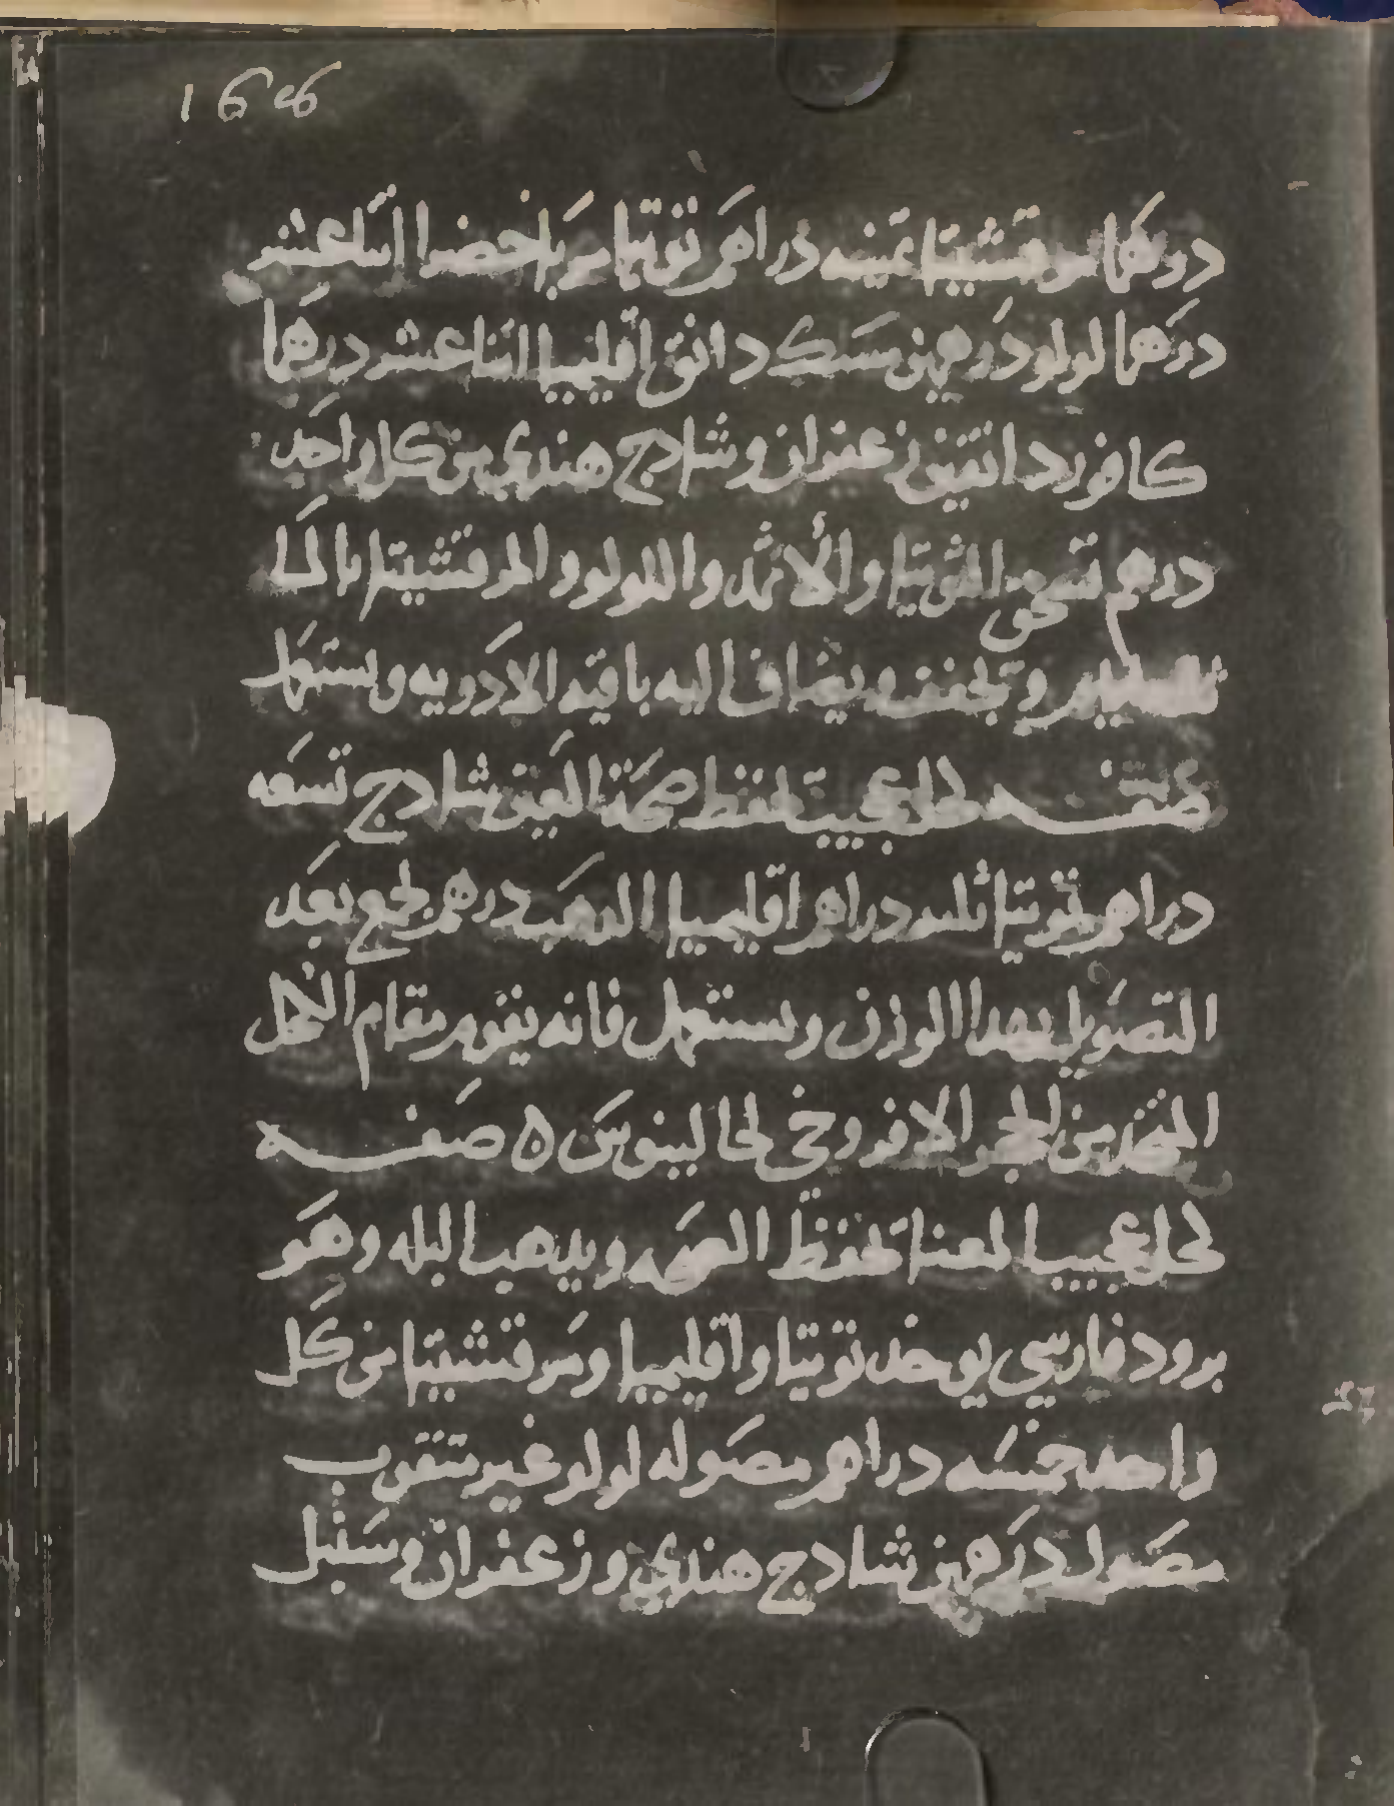 درهما مرقشيتا ثمنيه دراهم توتيا مربا خضرا اثنا عشر
درهما لولو درهمين مسك دانق اقليميا اثنا عشر درهما
كافور دانقين زعفران وشادج هندي من كل واحد
درهم تسحق التوتيا والأثمد واللولو والمرقشيتا بالما
وتجفف ويضاف اليه باقيه الادويه ويستعمل
صفه كحل عجيب لحفظ صحة العين شادج تسعه
دراهم توتيا ثلثه دراهم اقليميا الذهب درهم يجمع بعد
التصويل بهذا الوزن ويستعمل فانه يقوم مقام الكحل
المتخذ من الحجر الافروجي لجالينوس ٥ صفه
كحل عجيب لحفظ الصحه ويذهب البله وهو
برود فارسي يوخذ توتيا واقليميا ومرقشيتا من كل
واحد خمسه دراهم مصوله لولو غير مثقوب
مصول درهمين شادج هندي وزعفران وسنبل